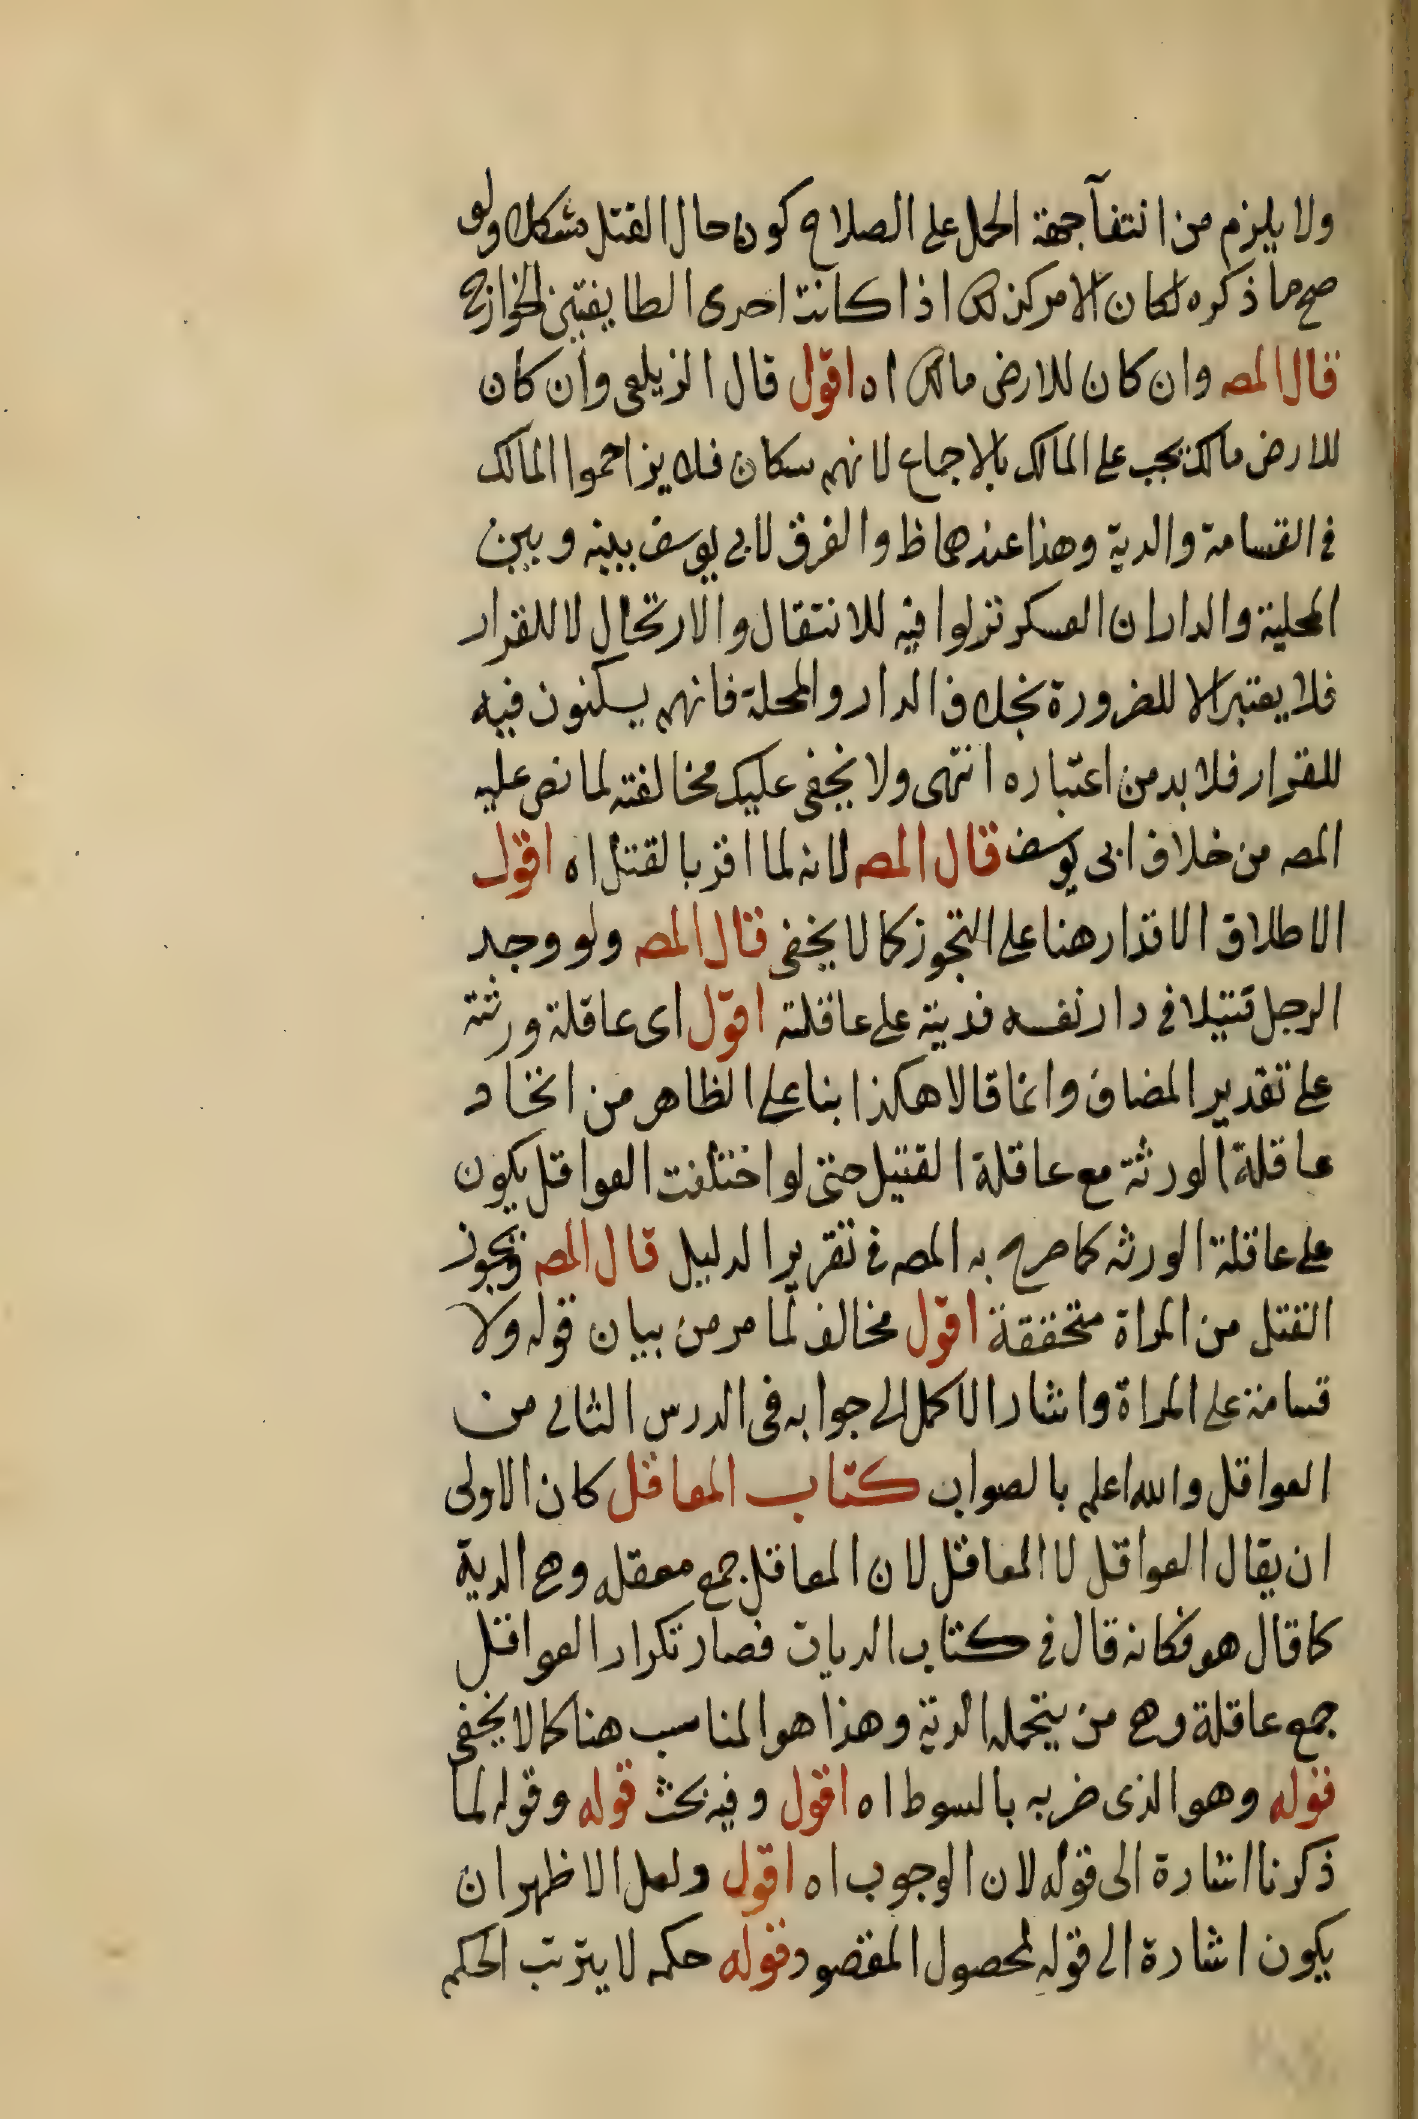 ولا يلزم من انتفآ جهة الحمل على الصلاح كون حال القتل مشكلا ولو
صح ما ذكره لكان الامر كذلك اذا كانت احدى الطايفتين الخوازج
قال المصـ وان كان للارض مالك اه اقول قال الزيلعى وان كان
للارض مالك يجب على المالك بالاجماع لانهم سكان فلا يزاحموا المالك
فى القسامة والدية وهذا عندهما ظ والفرق لابى يوسف بينه وبين
المحلية والدار ان العسكر نزلوا فيه للانتقال والارتحال لا للقرار
فلا يعتبر الا للضرورة بخلاف الدار والمحلة فانهم يسكنون فيه
للقرار فلا بد من اعتباره انتهى ولا يخفى عليك مخالفته لما نص عليه
المصـ من خلاف ابى يوسف قال المصـ لانه لما اقر بالقتل اه اقول
الاطلاق الاقرار هنا على التجوز كما لا يخفى قال المصـ ولو وجد
الرجل قتيلا فى دار نفسه فديته على عاقلته اقول اى عاقلة ورثته
على تقدير المضاف وانما قالا هكذا بنا على الظاهر من اتحاد
عاقلة الورثة مع عاقلة القتيل حتى لو اختلفت العواقل يكون
على عاقلة الورثه كما صرح به المصـ فى تقرير الدليل قال المصـ وتجوز
القتل من المراة متحققة اقول مخالف لما مر من بيان قوله ولا
قسامة على المراة واشار الاكمل الى جوابه فى الدرس الثانى من
العواقل والله اعلم بالصواب كتاب المعاقل كان الاولى
ان يقال العواقل لا المعاقل لان المعاقل جمع معقله وهى الدية
كما قال هو فكانه قال فى كتاب الديات فصار تكرار العواقل
جمع عاقلة وهى من يتحمله الدية وهذا هو المناسب هنا كما لا يخفى
قوله وهو الذى ضربه بالسوط اه اقول وفيه بحث قوله وقوله لما
ذكرنا اشارة الى قوله لان الوجوب اه اقول ولعل الاظهر ان
يكون اشارة الى قوله لمحصول المقصود قوله حكمه لا يترتب الحكم